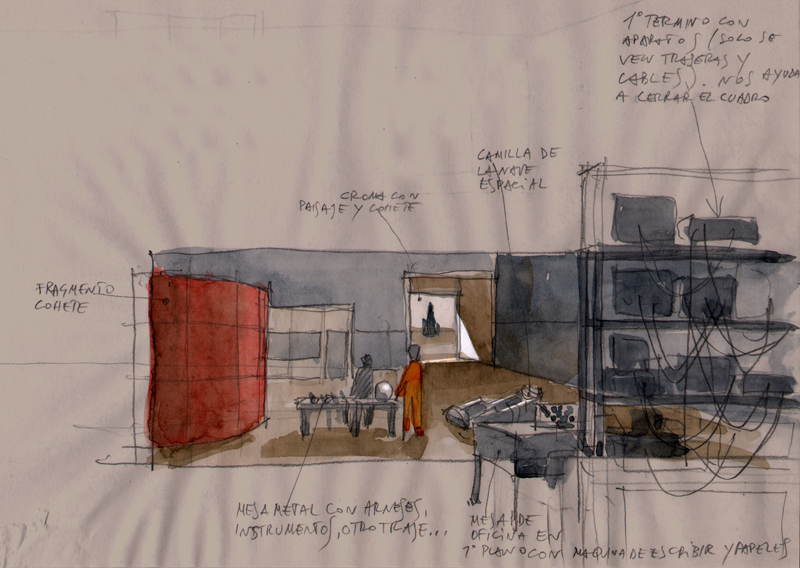 1º TERMINO CON
APARATOS (SOLO SE
VEN TRASERAS Y
CABLES). NOS AYUDA
A CERRAR EL CUADRO
CAMILLA DE
LA NAVE
ESPACIAL
CROMA CON
PAISAJE Y COHETE
FRAGMENTO
COHETE
MESA METAL CON ARNESES,
INSTRUMENTOS, OTRO TRAJE...
MESA DE
OFICINA EN
1º PLANO CON MAQUINA DE ESCRIBIR Y PAPELES